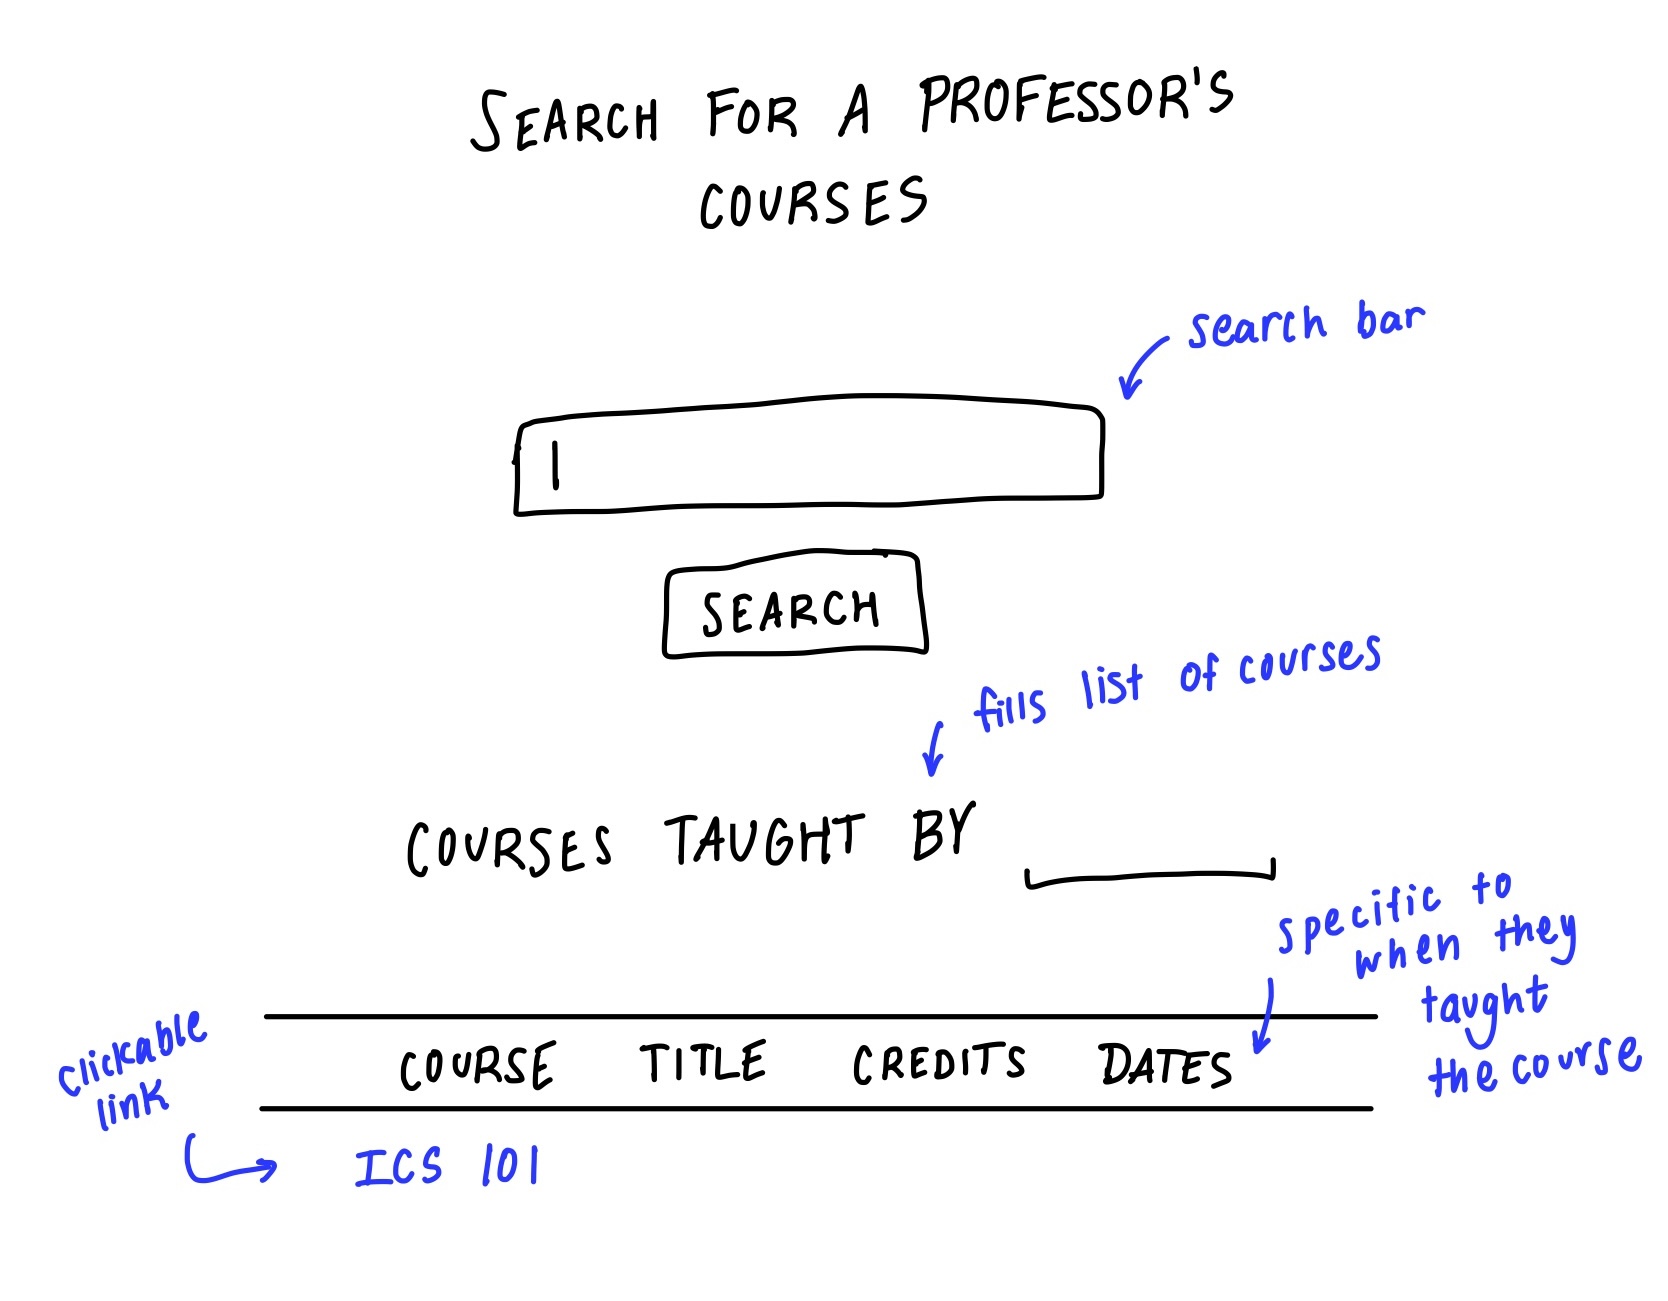 SEARCH FOR A PROFESSOR'S
COURSES
search bar
SEARCH
fills list of courses
COURSES TAUGHT BY
specific to
when they
taught
the course
clickable
link
COURSE TITLE CREDITS DATES
ICS 101